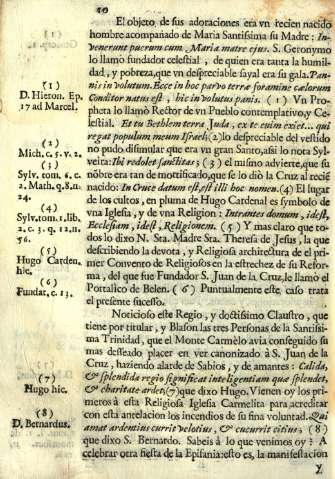 10
El objeto de sus adoraciones era vn recien nacido
hombre acompañado de Maria Santissima su Madre: In-
venerunt puerum cum Maria matre ejus. S. Geronymo
lo llamo fundador celestial, de quien era tanta la humil-
dad, y pobreza, que vn despreciable sayal era su gala. Pan-
nis involutum. Ecce in hoc parvo terræ foramine cælorum
Conditor natus est, hic in volutus panis. (1) Vn Pro-
pheta lo llamò Rector de vn Pueblo contemplativo, y Ce-
lestial. Et tu Bethlem terra Juda, ex te enim exiet... qui
regat populum meum Israel; (2) lo despreciable del vestido
no pudo disimular que era vn gran Santo, assi lo nota Syl-
veira: Ibi redolet sanctitas; (3) el mismo advierte, que su
nōbre era tan de mortificado, que se lo diò la Cruz al recié
nacido: In Cruce datum est, est illi hoc nomen. (4) El lugar
de los cultos, en pluma de Hugo Cardenal es symbolo de
vna Iglesia, y de vna Religion: Intrantes domum, idest,
Ecclesiam, idest, Religionem. (5) Y mas claro que to-
dos lo dixo N. Sta. Madre Sta. Theresa de Jesus, la que
describiendo la devota, y Religiosa architectura de el pri-
mer Convento de Religiosos en la estrechez de su Refor-
ma, del que fue Fundador S. Juan de la Cruz, le llamò el
Portalico de Belen. (6) Puntualmente este caso trata
el presente sucesso.
Noticioso este Regio, y doctissimo Claustro, que
tiene por titular, y Blason las tres Personas de la Santissi-
ma Trinidad, que el Monte Carmèlo avia conseguido su
mas desseado placer en ver canonizado à S. Juan de la
Cruz, haziendo alarde de Sabios, y de amantes: Calida,
& splendida regio significat intelligentiam quæ splendet,
& charitate ardet, (7) que dixo Hugo. Vienen oy los pri-
meros à esta Religiosa Iglesia Carmelita para acreditar
con esta antelacion los incendios de su fina voluntad. Qui
amat ardentius currit velotius, & cucurrit citius, (8)
que dixo S. Bernardo. Sabeis à lo que venimos oy? A
celebrar otra fiesta de la Epifania: esto es, la manifestacion
y
(1)
D. Hieron. Ep.
17 ad Marcel.
(2)
Mich. c. 5. v. 2.
(3)
Sylv. tom. 6. c.
2. Math. q. 8. n.
24.
(4)
Sylv. tom. 1. lib.
2. c. 3. q. 12. n.
56.
(5)
Hugo Carden.
hic.
(6)
Fundat. c. 13.
(7)
Hugo hic.
(8)
D. Bernardus.